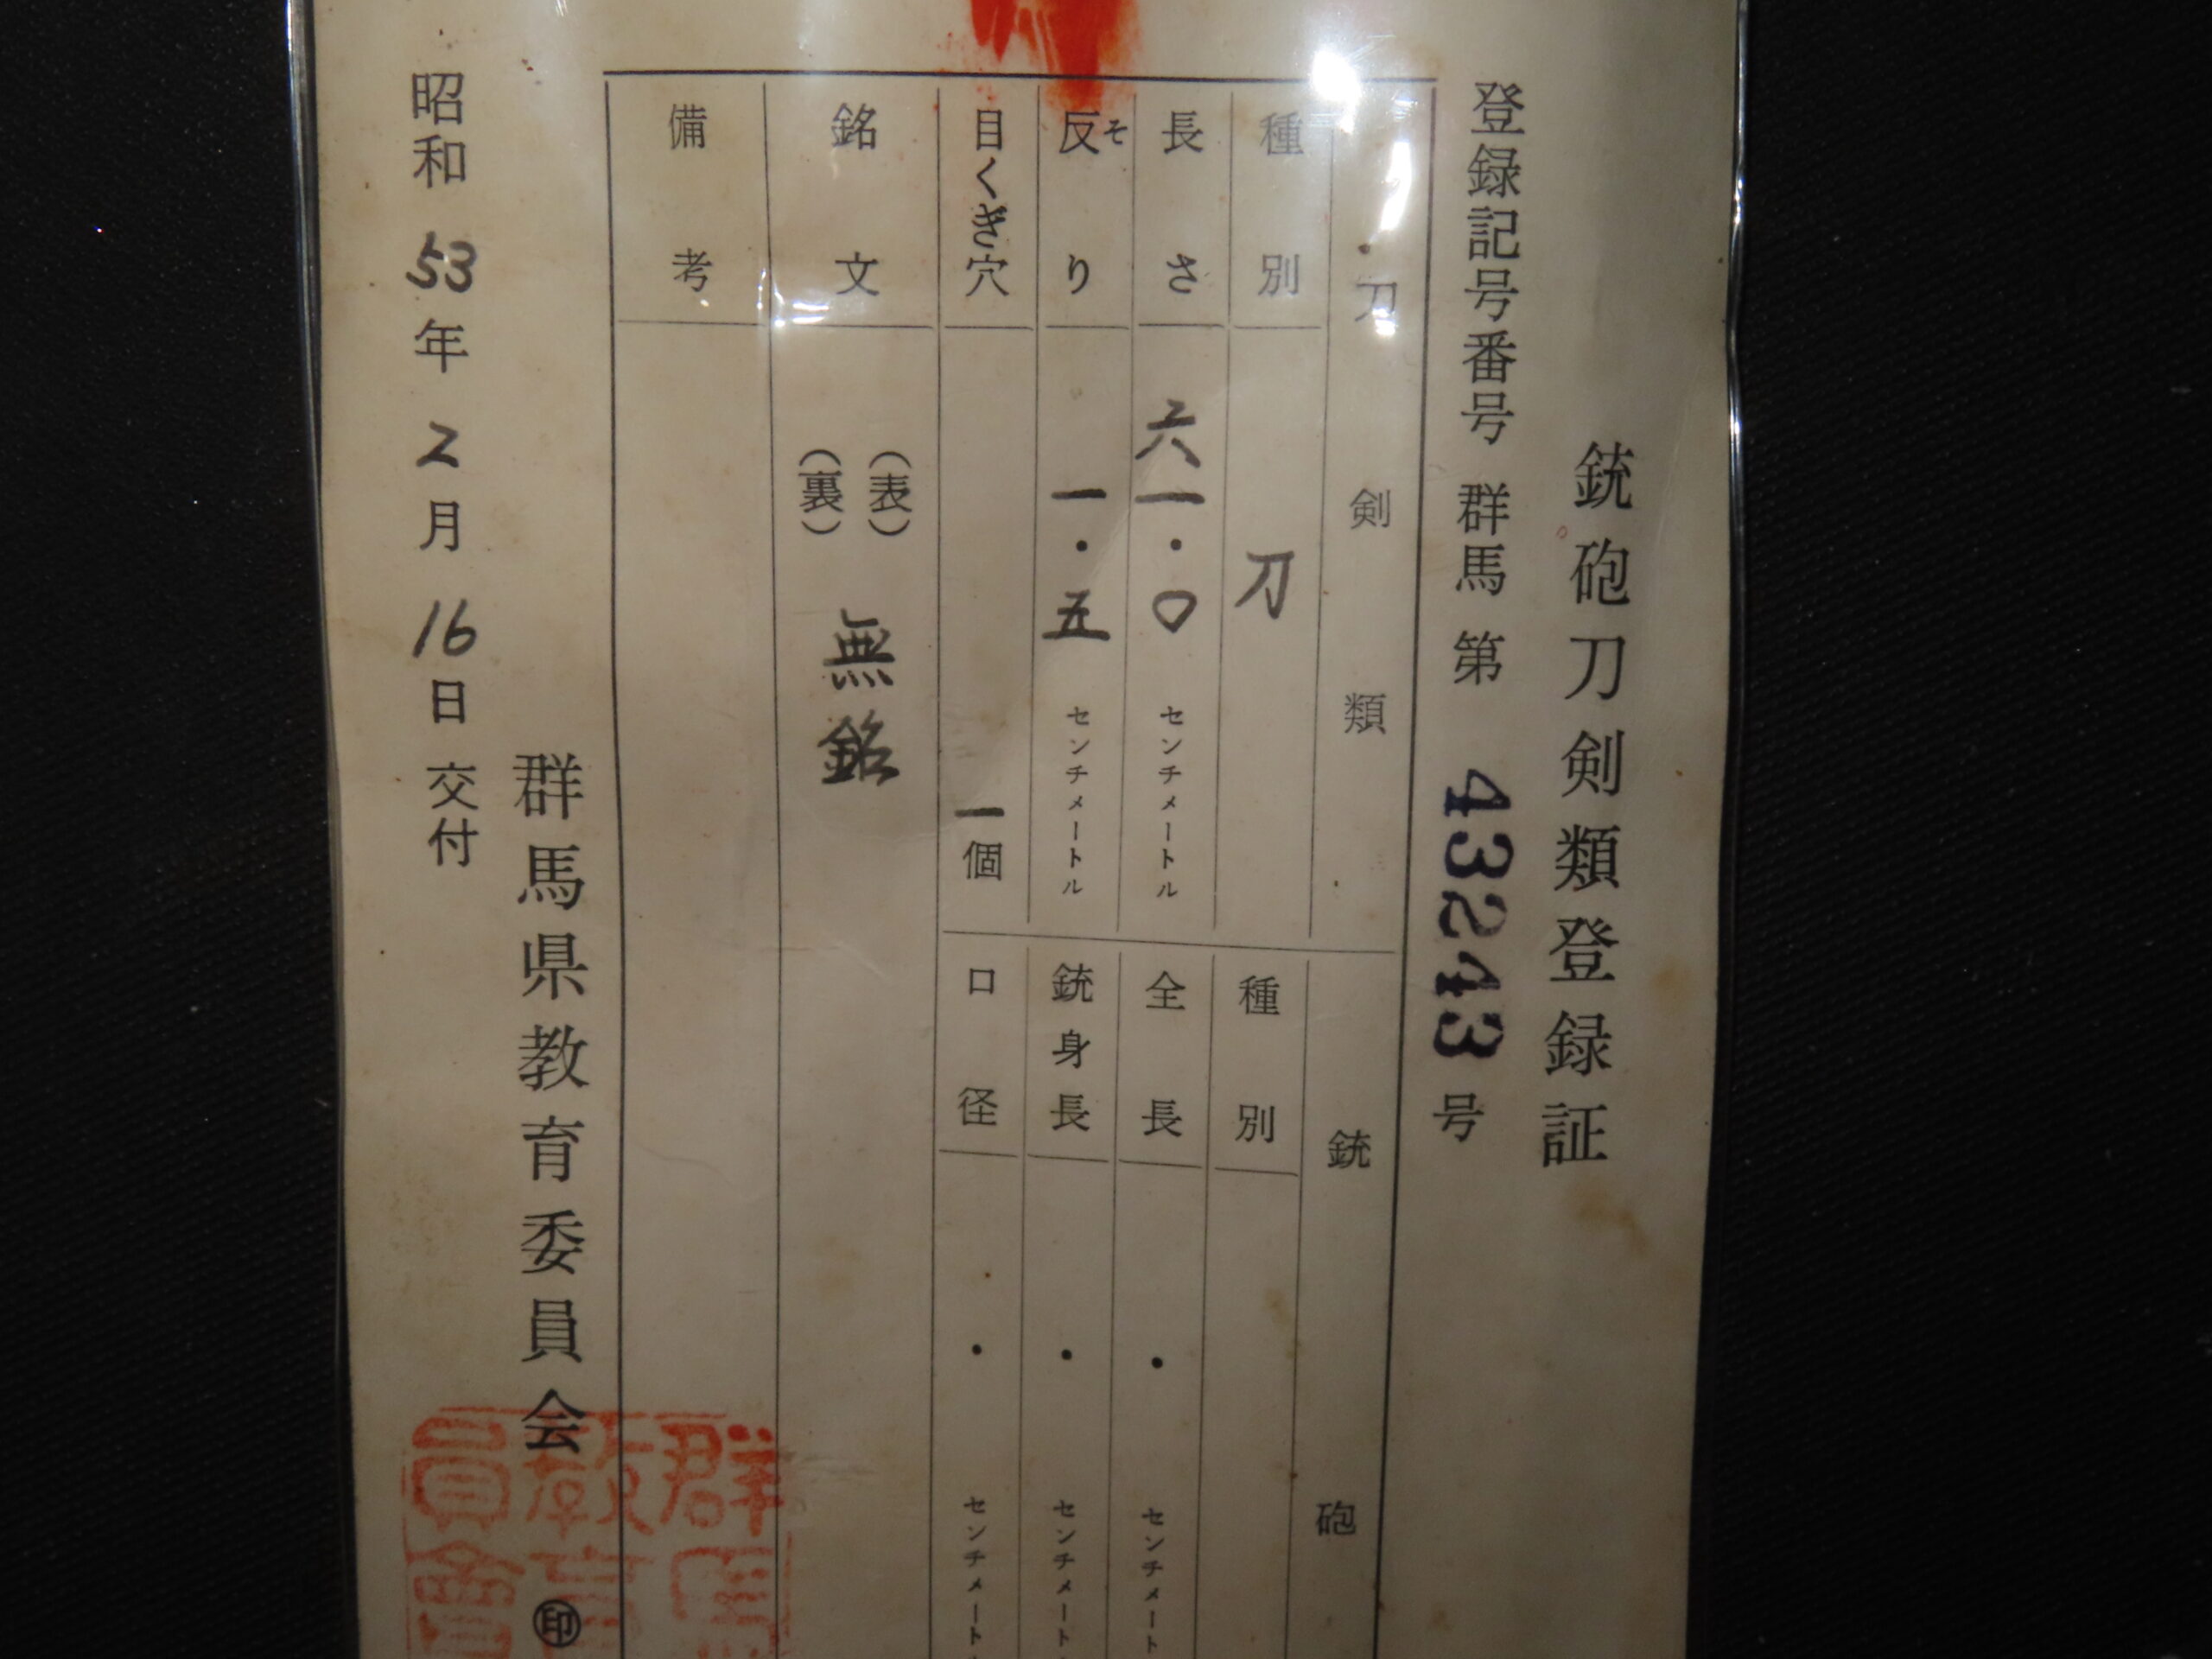 銃砲刀剣類登録証
登録記号番号 群馬 第 43243 号
刀剣類
種別 刀
長さ 六一・〇 センチメートル
反り そ 一・五 センチメートル
目くぎ穴 一個
銘文 (表) 無銘
(裏)
備考
銃砲
種別
全長 ・ センチメート
銃身長 ・ センチメート
口径 ・ センチメート
昭和 53 年 2 月 16 日 交付
群馬県教育委員会 ㊞
群馬
教育
員會